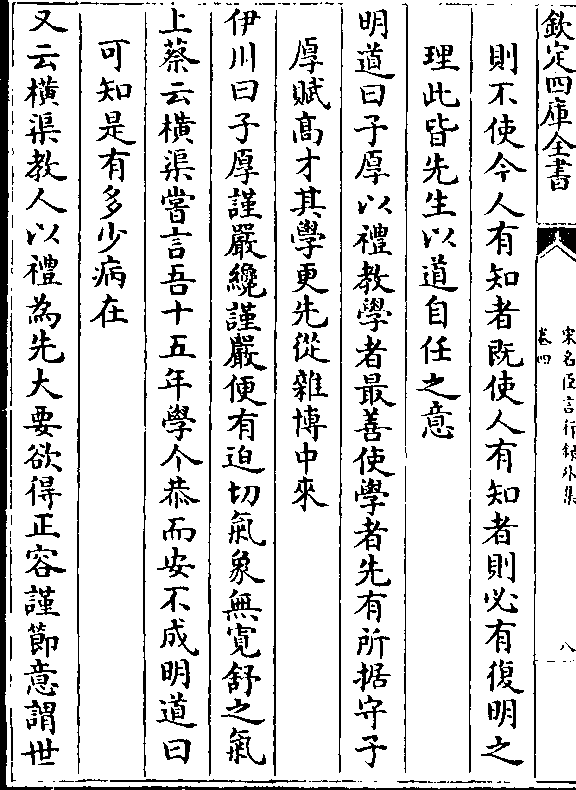 欽定四庫全書
宋名臣言行錄外集
卷四
八
則不使今人有知者既使人有知者則必有復明之
理此皆先生以道自任之意
明道曰子厚以禮教學者最善使學者先有所據守子
厚賦髙才其學更先從雜博中來
伊川曰子厚謹嚴纔謹嚴便有迫切氣象無寛舒之氣
上蔡云横渠嘗言吾十五年學个恭而安不成明道曰
可知是有多少病在
又云横渠教人以禮為先大要欲得正容謹節意謂世